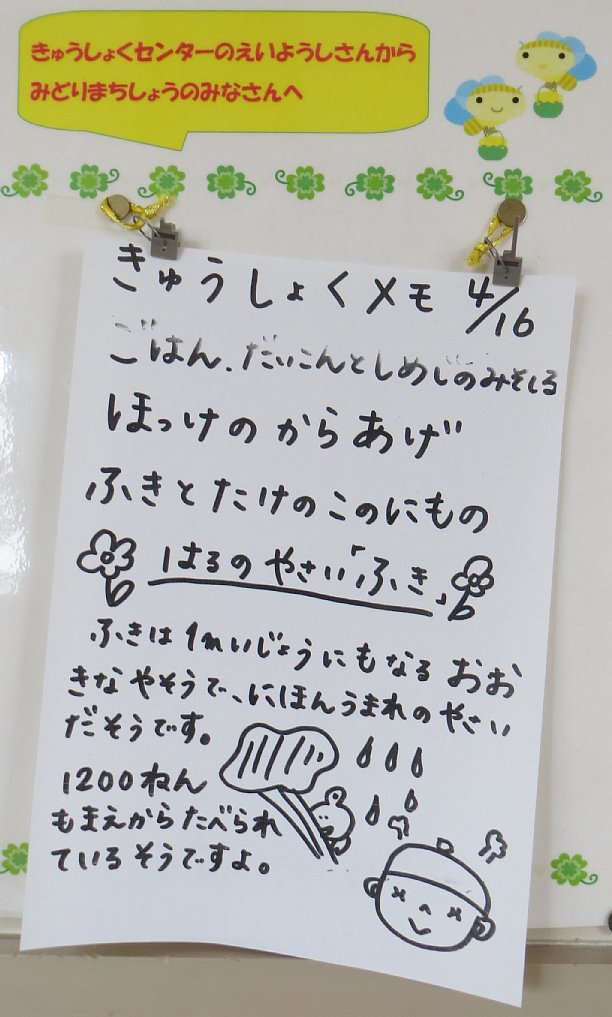 きゅうしょくセンターのえいようしさんから
みどりまちしょうのみなさんへ
きゅうしょくメモ 4/16
ごはん、だいこんとしめじのみそしる
ほっけのからあげ
ふきとたけのこのにもの
はるのやさい「ふき」
ふきは1mいじょうにもなるおお
きなやそうで、にほんうまれのやさい
だそうです。
1200ねん
もまえからたべられ
ているそうですよ。